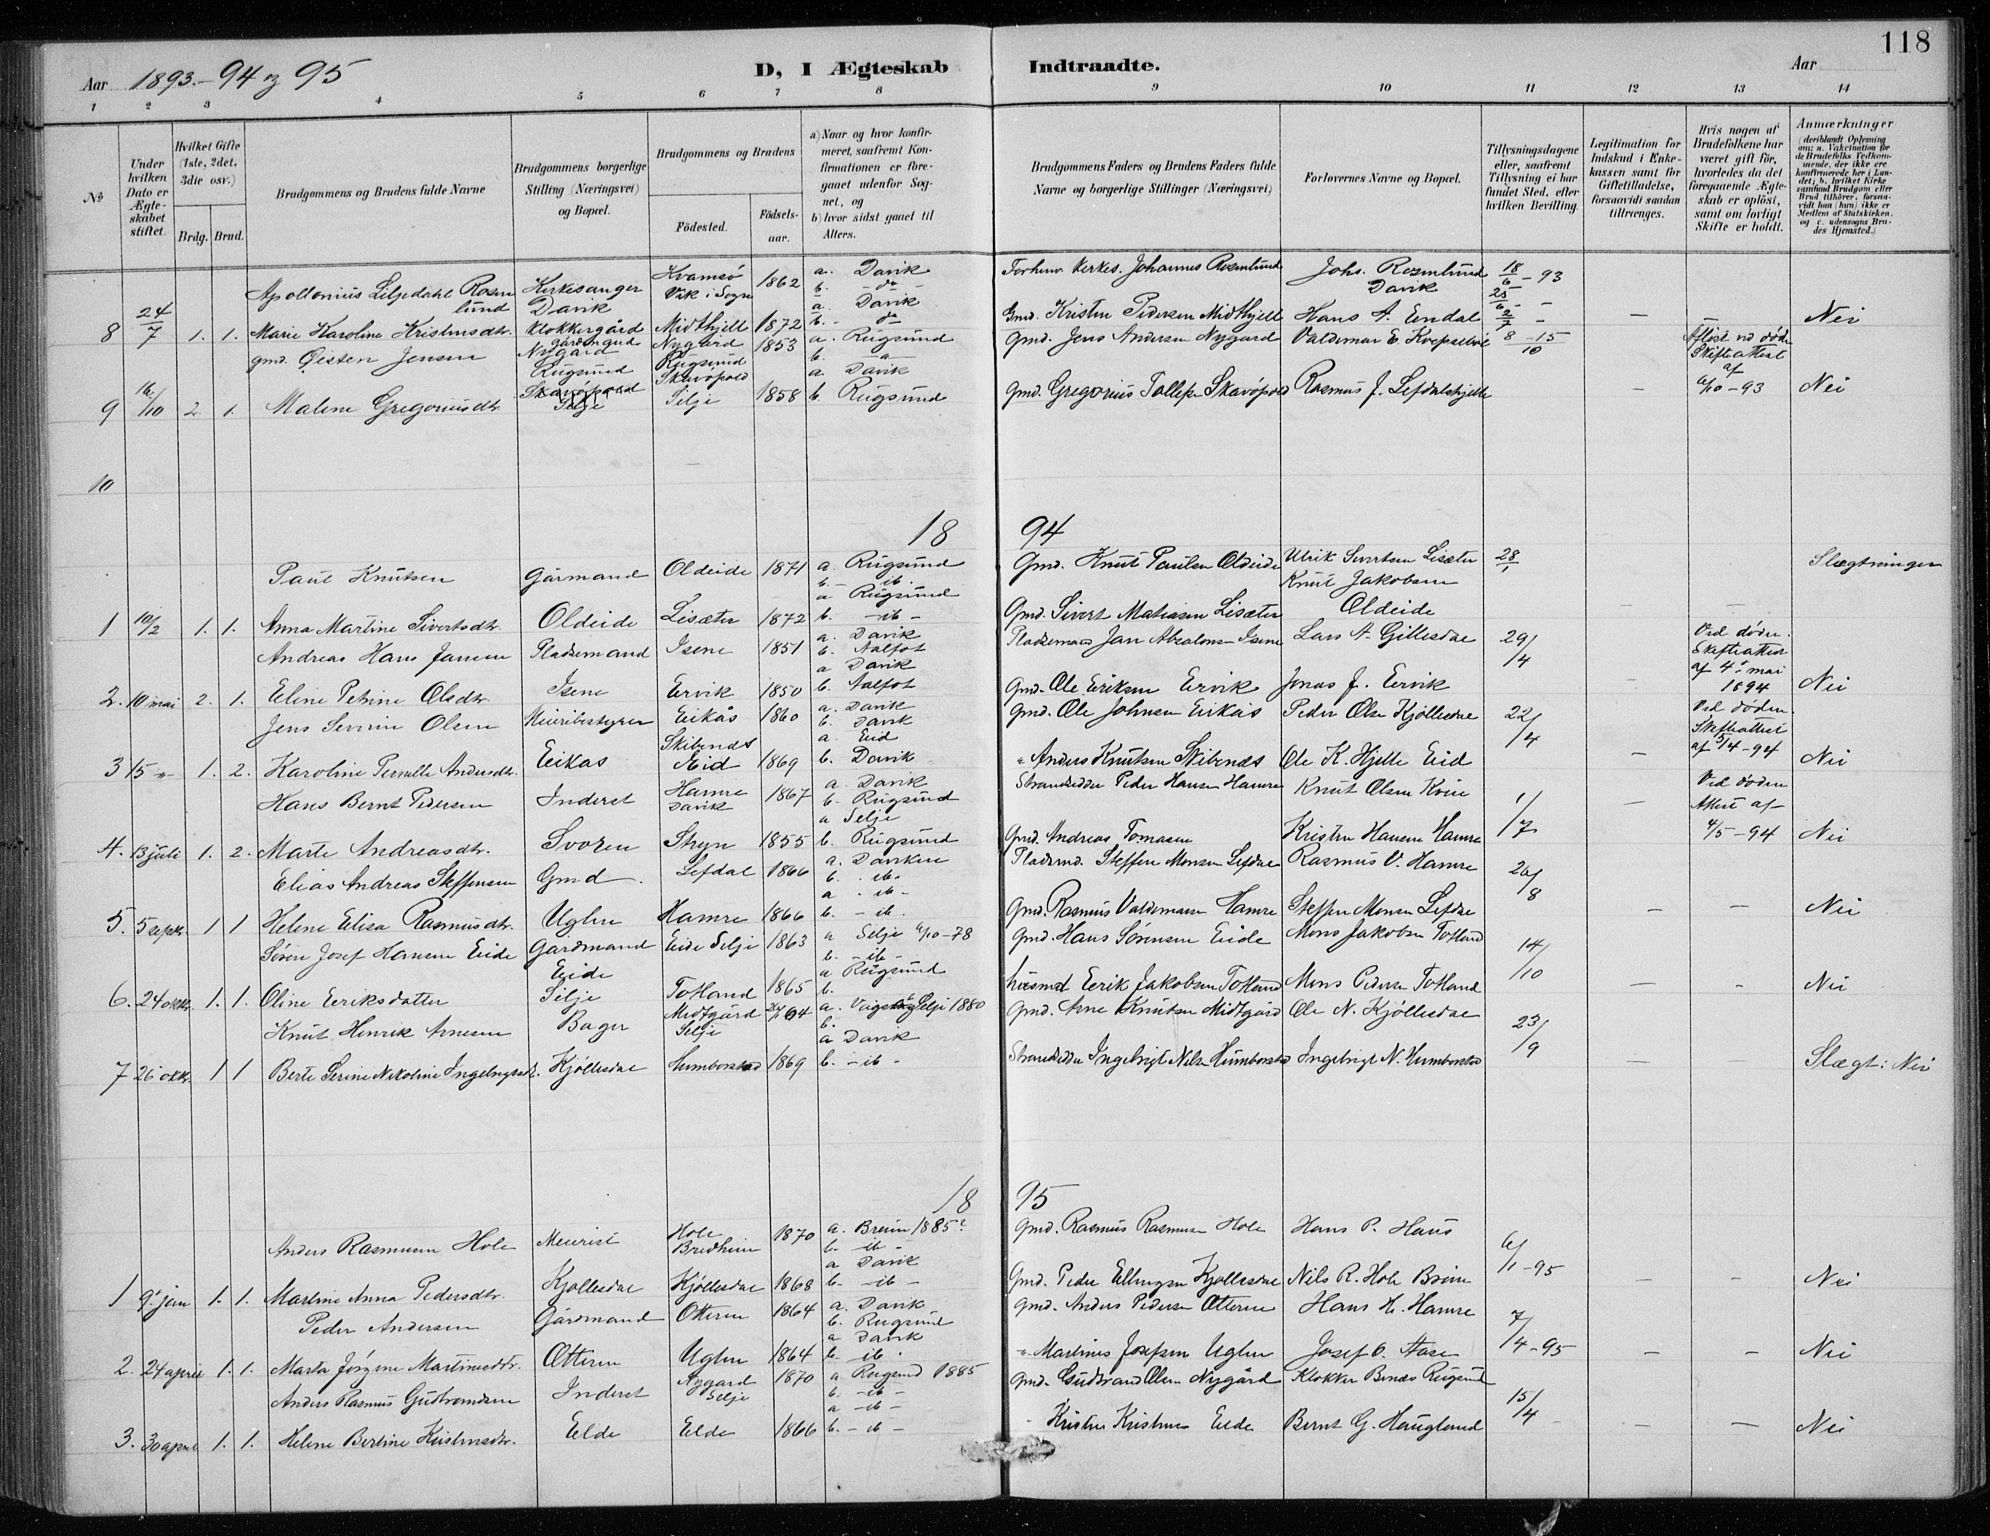 118
Aar 1893.-94 og 95
D, I Ægteskab Indtraadte.
Aar
1 2 3 4 5 6 7 8 9 10 11 12 13 14
No
Under hvilken Dato er Ægteskabet stiftet.
Hvilket Gifte (1ste, 2det, 3die osv.)
Brdg. Brud.
Brudgommens og Brudens fulde Navne
Brudgommens borgerlige Stilling (Næringsvei) og Bopæl.
Brudgommens og Brudens
Födested.
Födselsaar.
a) Naar og hvor konfirmeret, saafremt Konfirmationen er foregaaet udenfor Sognet, og
b) hvor sidst gaaet til Alters.
Brudgommens Faders og Brudens Faders fulde Navne og borgerlige Stillinger (Næringsvei)
Forlovernes Navne og Bopæl.
Tillysningsdagene eller, saafremt Tillysning ei har fundet Sted, efter hvilken Bevilling.
Legitimation for Indskud i Enkekassen samt for Giftetilladelse, forsaavidt saadan tiltrænges.
Hvis nogen af Brudefolkene har været gift för, hvorledes da det foregaaende Ægteskab er oplöst, samt om lovligt Skifte er holdt.
Anmærkninger (deriblandt Oplysning om: a. Vakcination for de Brudefolks Vedkommende, der ikke ere konfirmerede her i Landet; b. hvilket Kirkesamfund Brudgom eller Brud tilhörer, forsaavidt han (hun) ikke er Medlem af Statskirken, og c. udensogns Brudes Hjemsted.)
Apollonius Liljedahl Rosenlund Kirkesanger Davik Kvamsø Vik i Sogn 1862 a. Davik b. do Forhenv. Kirkes. Johannes Rosenlund Johs. Rosenlund Davik 18/6 -93
8 24/7 1. 1. Marie Karoline Kristensdtr. Klokkergård Midthjell 1872 a. Davik b. do Gmd. Kristen Pedersen Midthjell Hans A. Endal 25/6 2/7 Nei
gmd. Øisten Jensen Nygård Rugsund Nygård Rugsund 1853 a. Rugsund gmd. Jens Andersen Nygaard Valdemar E. 8-15/10
9 16/10 2. 1. Malene Gregoriusdtr. Selje Skavøpold Selje 1858 a Davik b. Rugsund gmd. Gregorius Skavøpold Rasmus J. Lefdalshjelle Skifteattest af 6/10-93 Nei
10
1894
Paul Knutsen Gårmand Oldeide 1871 a. Rugsund b. - ib. Gmd. Knut Paulsen Oldeide Ulrik Sivertsen Lisæter 28/1 Slægtninger
1 10/2 1. 1. Anna Martine Sivertsdtr. Oldeide Lisæter 1872 a Rugsund b. - ib - Gmd. Sivert Matiasen Lisæter Knut Jakobsen Oldeide
Andreas Hans Jansen Pladsemand Isene 1851 a. Davik b. Aalfot Pladsemand Jan Absalons. Isene Lars A. Gillesdal 29/4 Ved døden. Skifteattest af 4de mai 1894
2. 10 mai 2. 1. Eline Petrine Olsdtr. Isene Ervik 1850 a Davik b. Aalfot Gmd. Ole Eriksen Ervik Jonas J. Ervik Nei
Jens Severin Olsen Meieribestyrer Eikås 1860 a. Davik b. Davik Gmd. Ole Johnsen Eikås Peder Olsen Kjøllesdal 22/4 Ved døden. Skifteattest af 5/4-94
3 15 " 1. 2. Karoline Pernille Andersdtr. Eikås Skibenes Eid 1869 a. Eid b. Davik " Anders Knutsen Skibenes Ole K. Hjelle Eid Nei
Hans Bernt Pedersen Inderst Hamre Davik 1867 a. Davik b. Rugsund Strandsidder Peder Hansen Hamre Knut Olsen Kvie 1/7 Ved døden Attest af 4/5-94
4. 13 juli 1. 2. Marte Andreasdtr. Svoren Stryn 1855 a Selje b. Rugsund Gmd. Andreas Tomasen Kristen Hansen Hamre Nei
Elias Andreas Steffensen Gmd. Lefdal 1866 a. Daviken b. - ib - Pladsemd. Steffen Monsen Lefdal Rasmus V. Hamre 26/8
5. 5 septbr. 1 1 Helene Elisa Rasmusdtr. Uglen Hamre 1866 a - ib - b. - ib. Gmd. Rasmus Valdemarsen Hamre Steffen Monsen Lefdal Nei
Søren Josef Hansen Eide Gårdmand Eide Eide Selje 1863 a Selje 6/10-78 b. - ib - Gmd. Hans Sørensen Eide Mons Jakobsen Totland 14/10
6. 24 oktbr. 1. 1. Oline Eriksdatter Selje Totland 1865 a Rugsund b. husmd Eerik Jakobsen Totland Mons Pedersen Totland Nei
Knut Henrik Arnesen Bager Midtgård Selje a. Selje 1880 b. Gmd. Arne Knutsen Midtgård Ole N. Kjøllesdal 23/9
7 26 oktbr. 1 1 Berte Serine Nikoline Kjøllesdal Humborstad 1869 a Davik b. - ib - Strandsidder Ingebrigt Nilsen Humborstad Ingebrigt N. Humborstad Slægt: Nei
1895
Anders Rasmussen Hole Meierist Hole Bredheim 1870 a. Breim 1885 b. - ib - Gmd. Rasmus Rasmusen Hole Hans P. Haus 6/1-95
1 9. jan 1. 1. Martine Anna Pedersdtr. Kjøllesdal Kjøllesdal 1868 a Davik b. - ib - Gmd. Peder Ellingsen Kjøllesdal Nils R. Hole Breim Nei
Peder Andersen Gårdmand Otteren 1864 a. Davik b. Rugsund Gmd. Anders Pedersen Otteren Hans H. Hamre 7/4-95
2. 24 april 1. 1. Marta Jørgine Martinusdtr. Otteren Uglen 1864 a Davik b. - ib. " Martinus Josefsen Uglen Josef O. Aase Nei
Anders Rasmus Gudbrandsen Inderst Nygård Selje 1870 a Rugsund 1885 b. - ib - Gmd. Gudbrand Olsen Nygård Klokker Rugsund 15/4
3. 30 april 1. 1. Helene Bertine Kristensdtr. Elde Elde 1866 a - ib - b. - ib - " Kristen Kristensen Elde Bernt G. Haugland Nei